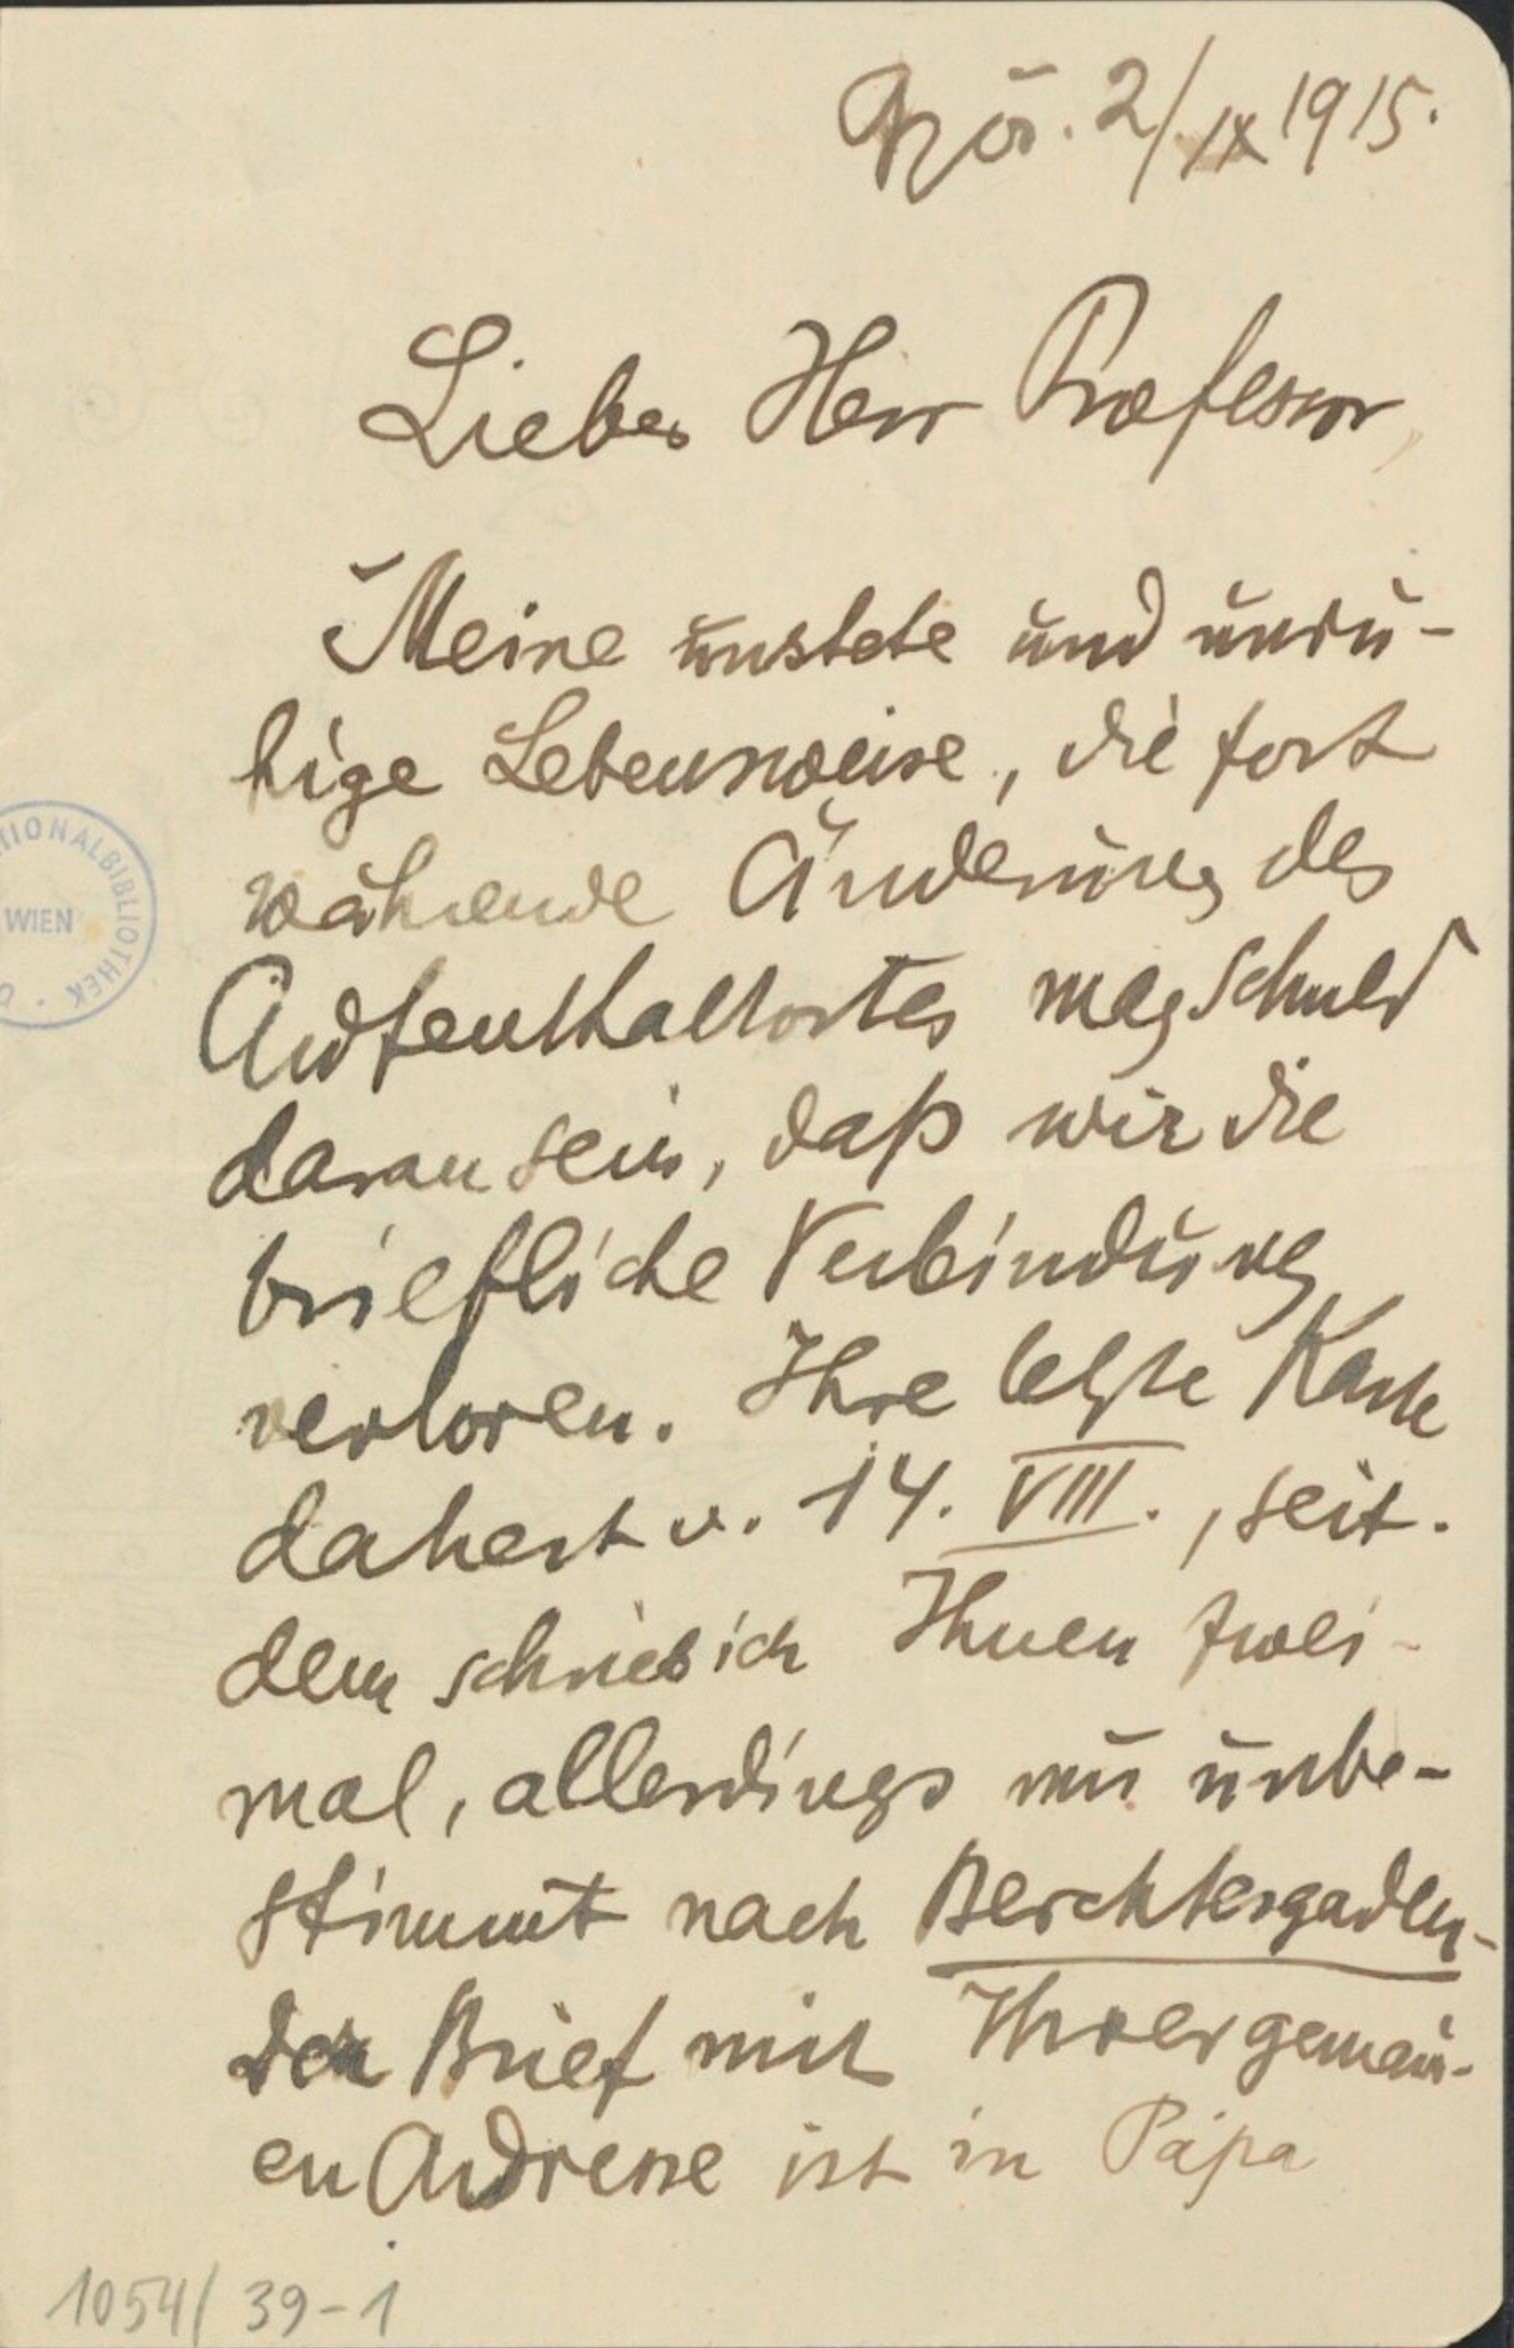 Győr. 2/IX 1915.
Lieber Herr Professor,
Meine unstete und unru-
hige Lebensweise, die fort
währende Änderung des
Aufenthaltortes mag Schuld
daran sein, daß wir die
briefliche Verbindung
verloren. Ihre letzte Karte
datiert v. 14. VIII., seit-
dem schrieb ich Ihnen zwei-
mal, allerdings nur unbe-
stimmt nach Berchtesgaden-
der Brief mit Ihrer genau-
en Adresse ist in Pápa
TIONALBIBLIOTHEK
WIEN
1054/39-1